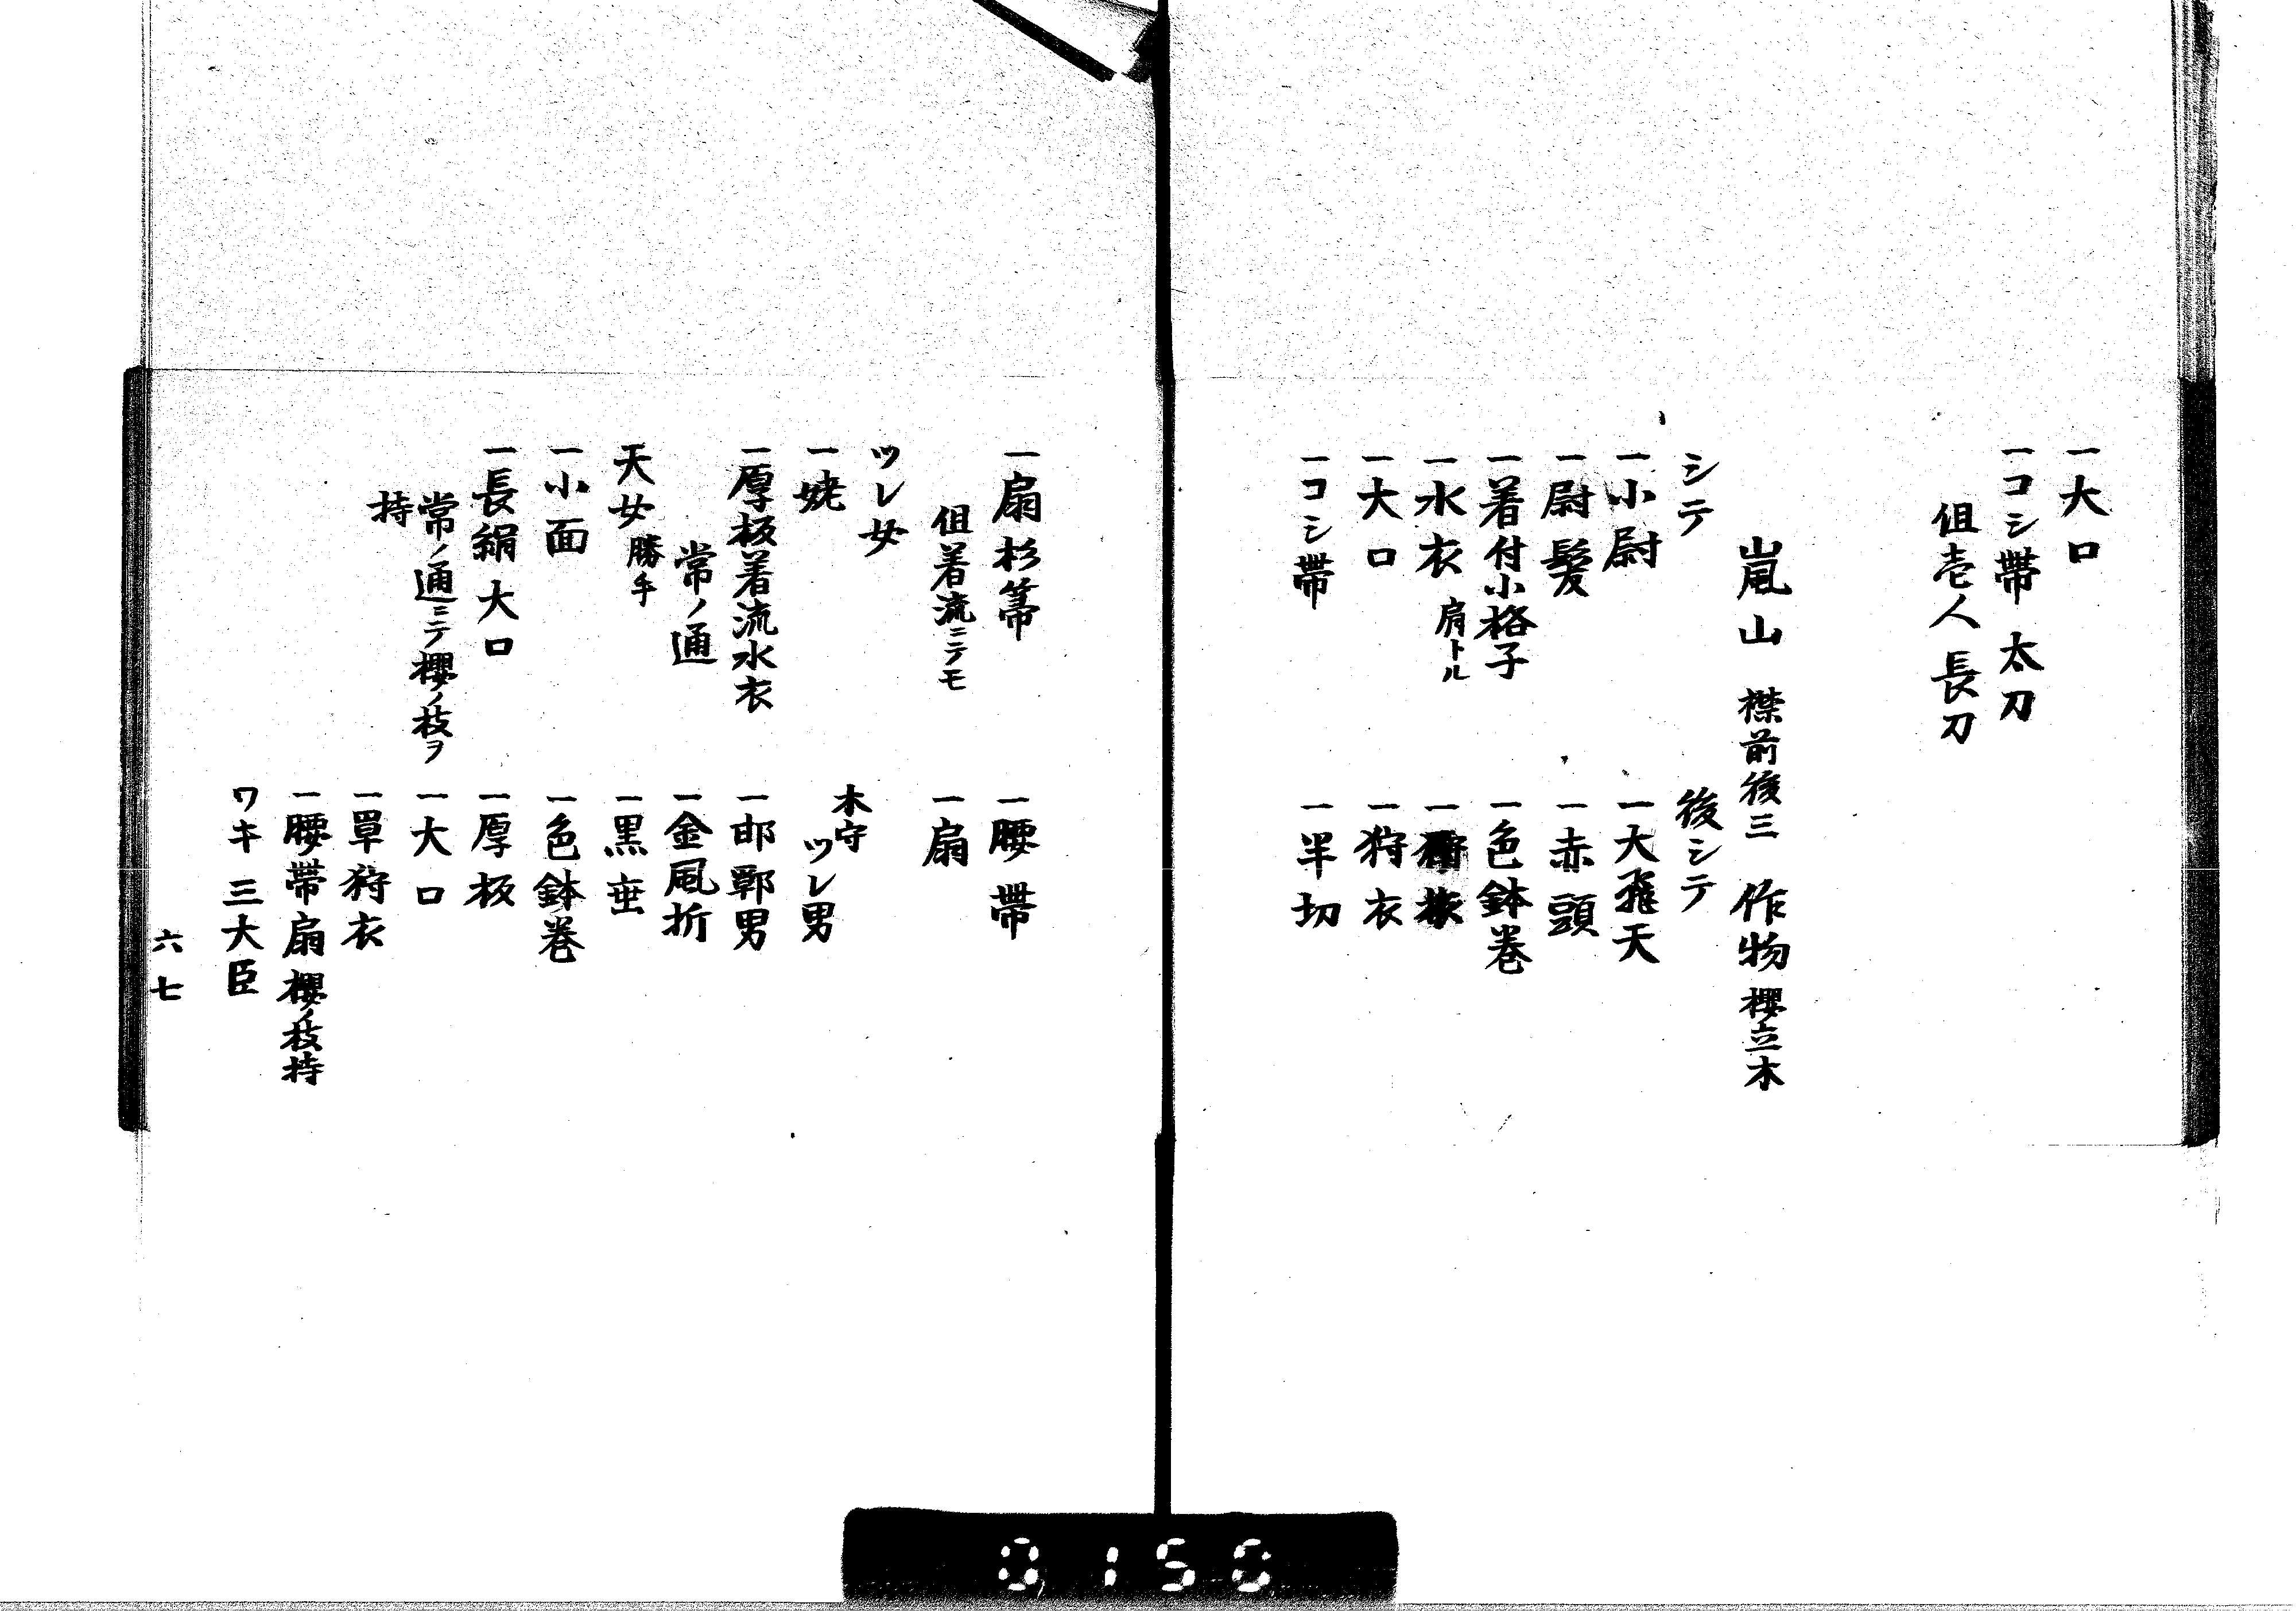 一大口
一コシ帯 太刀
但壱人長刀
嵐山 襟前後三 作物 櫻立木
シテ
一小尉
一尉髪
一着付小格子
一水衣 肩トル
一大口
一コシ帯
後シテ
一大飛天
一赤頭
一色鉢巻
一狩衣
一半切
一扇杉箒
但着流ニテモ
ツレ女
一姥
一厚板着流水衣
常ノ通
天女 勝手
一小面
一長絹大口
常ノ通ニテ櫻ノ枝ヲ
持
一腰帯
一扇
木守
ツレ男
一邯鄲男
一金風折
一黒垂
一色鉢巻
一厚板
一大口
一單狩衣
一腰帯扇櫻ノ枝持
ワキ 三大臣
六七
0150